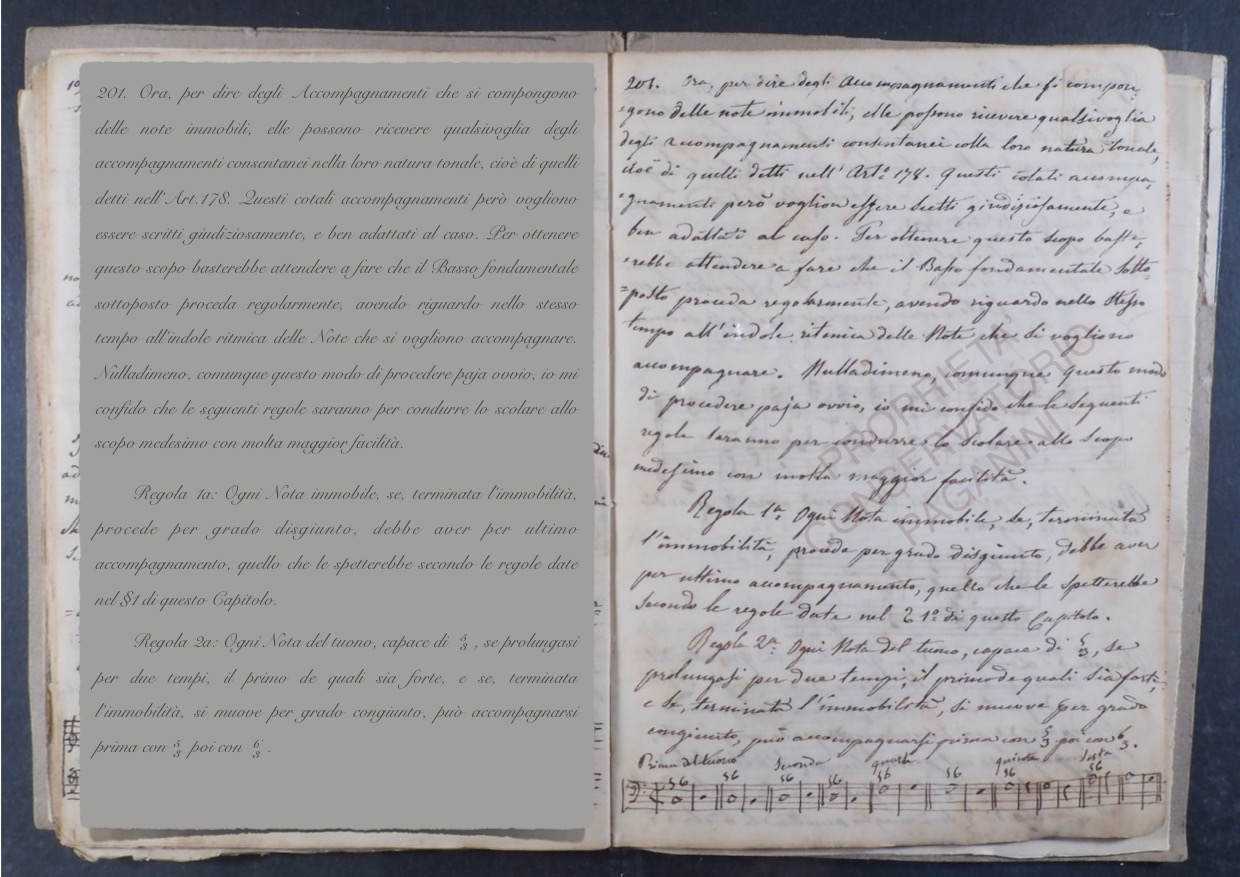 201. Ora, per dire degli Accompagnamenti che si compongono
delle note immobili, elle possono ricevere qualsivoglia degli
accompagnamenti consentanei nella loro natura tonale, cioè di quelli
detti nell'Art.178. Questi cotali accompagnamenti però vogliono
essere scritti giudiziosamente, e ben adattati al caso. Per ottenere
questo scopo basterebbe attendere a fare che il Basso fondamentale
sottoposto proceda regolarmente, avendo riguardo nello stesso
tempo all'indole ritmica delle Note che si vogliono accompagnare.
Nulladimeno, comunque questo modo di procedere paja ovvio, io mi
confido che le seguenti regole saranno per condurre lo scolare allo
scopo medesimo con molta maggior facilità.
Regola 1a: Ogni Nota immobile, se, terminata l'immobilità,
procede per grado disgiunto, debbe aver per ultimo
accompagnamento, quello che le spetterebbe secondo le regole date
nel §1 di questo Capitolo.
Regola 2a: Ogni Nota del tuono, capace di 5/3, se prolungasi
per due tempi, il primo de quali sia forte, e se, terminata
l'immobilità, si muove per grado congiunto, può accompagnarsi
prima con 5/3 poi con 6/3.
201. Ora, per dire degli Accompagnamenti che si compon,
=gono delle note immobili, elle possono ricevere qualsivoglia
degli accompagnamenti consentanei colla loro natura tonale,
cioè di quelli detti nell'Art.o 178. Questi cotali accompa,
=gnamento però voglion essere scelti giudiziosamente, e
ben adattati al caso. Per ottenere questo scopo baste,
=rebbe attendere a fare che il Basso fondamentale sotto=
=posto proceda regolarmente, avendo riguardo nello stesso
tempo all'indole ritmica delle Note che si vogliono
accompagnare. Nulladimeno, comunque questo modo
di procedere paja ovvio, io mi confido che le seguenti
regole saranno per condurre lo scolare allo scopo
medesimo con molta maggior facilità.
Regola 1a: Ogni Nota immobile, se, terminata
l'immobilità, procede per grado disgiunto, debbe aver
per ultimo accompagnamento, quello che le spetterebbe
secondo le regole date nel § 1o di questo Capitolo.
Regola 2a: Ogni Nota del tuono, capace di 5/3, se
prolungasi per due tempi, il primo de quali sia forte,
e se, terminata l'immobilità, si muove per grado
congiunto, può accompagnarsi prima con 5/3 poi con 6/3.
Prima del tuono Seconda quarta quinta Sesta
56 56 56 56 56 56 56 56
PROPRIETA'
CONSERVATORIO
PAGANINI